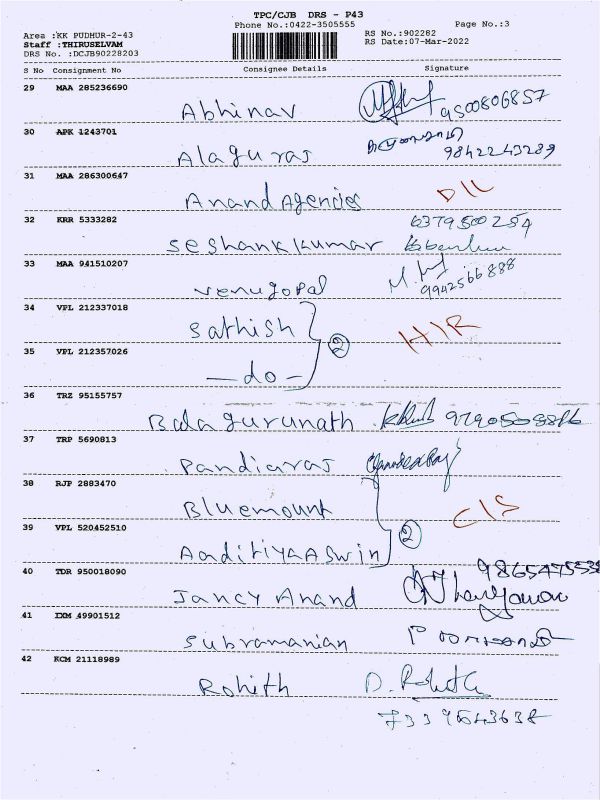 TPC/CJB DRS - P43
Phone No.:0422-3505555 Page No.:3
Area :KK PUDHUR-2-43 RS No.:902282
Staff :THIRUSELVAM RS Date:07-Mar-2022
DRS No. :DCJB90228203
S No Consignment No Consignee Details Signature
29 MAA 285236690
Abhinav 9500806857
30 APK 1243701
Alaguras 9842243289
31 MAA 286300647
Anand Agencies
32 KRR 5333282 6379500254
Seshankkumar
33 MAA 941510207
venugopal 9942566888
34 VPL 212337018
Sathish
2 HIR
35 VPL 212357026
— do —
36 TRZ 95155757
Bala gurunath
37 TRP 5690813
Pandiaras
38 RJP 2883470
Bluemount
2 CIS
39 VPL 520452510
Aaditiya Aswin
40 TDR 950018090
Jancy Anand
41 IXM 49901512
Subramanian
42 KCM 21118989
Rohith D. Rohith